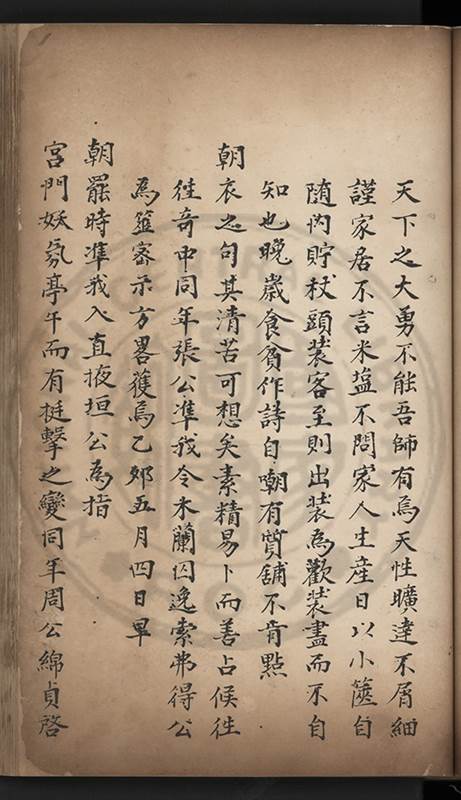 天下之大勇不能吾師有焉天性曠達不屑細
謹家居不言米塩不問家人生産日以小篋自
随内貯杖頭装客至則出装為歡装盡而不自
知也晩歳食貧作詩自嘲有質舖不肯點
朝衣之句其清苦可想矣素精易卜而善占候徃
徃竒中同年張公凖我令木蘭囚逸索弗得公
為筮家示方畧獲焉乙夘五月四日早
朝罷時凖我入直掖垣公為指
宮門妖氛亭午而有挺擊之變同年周公綿貞啓